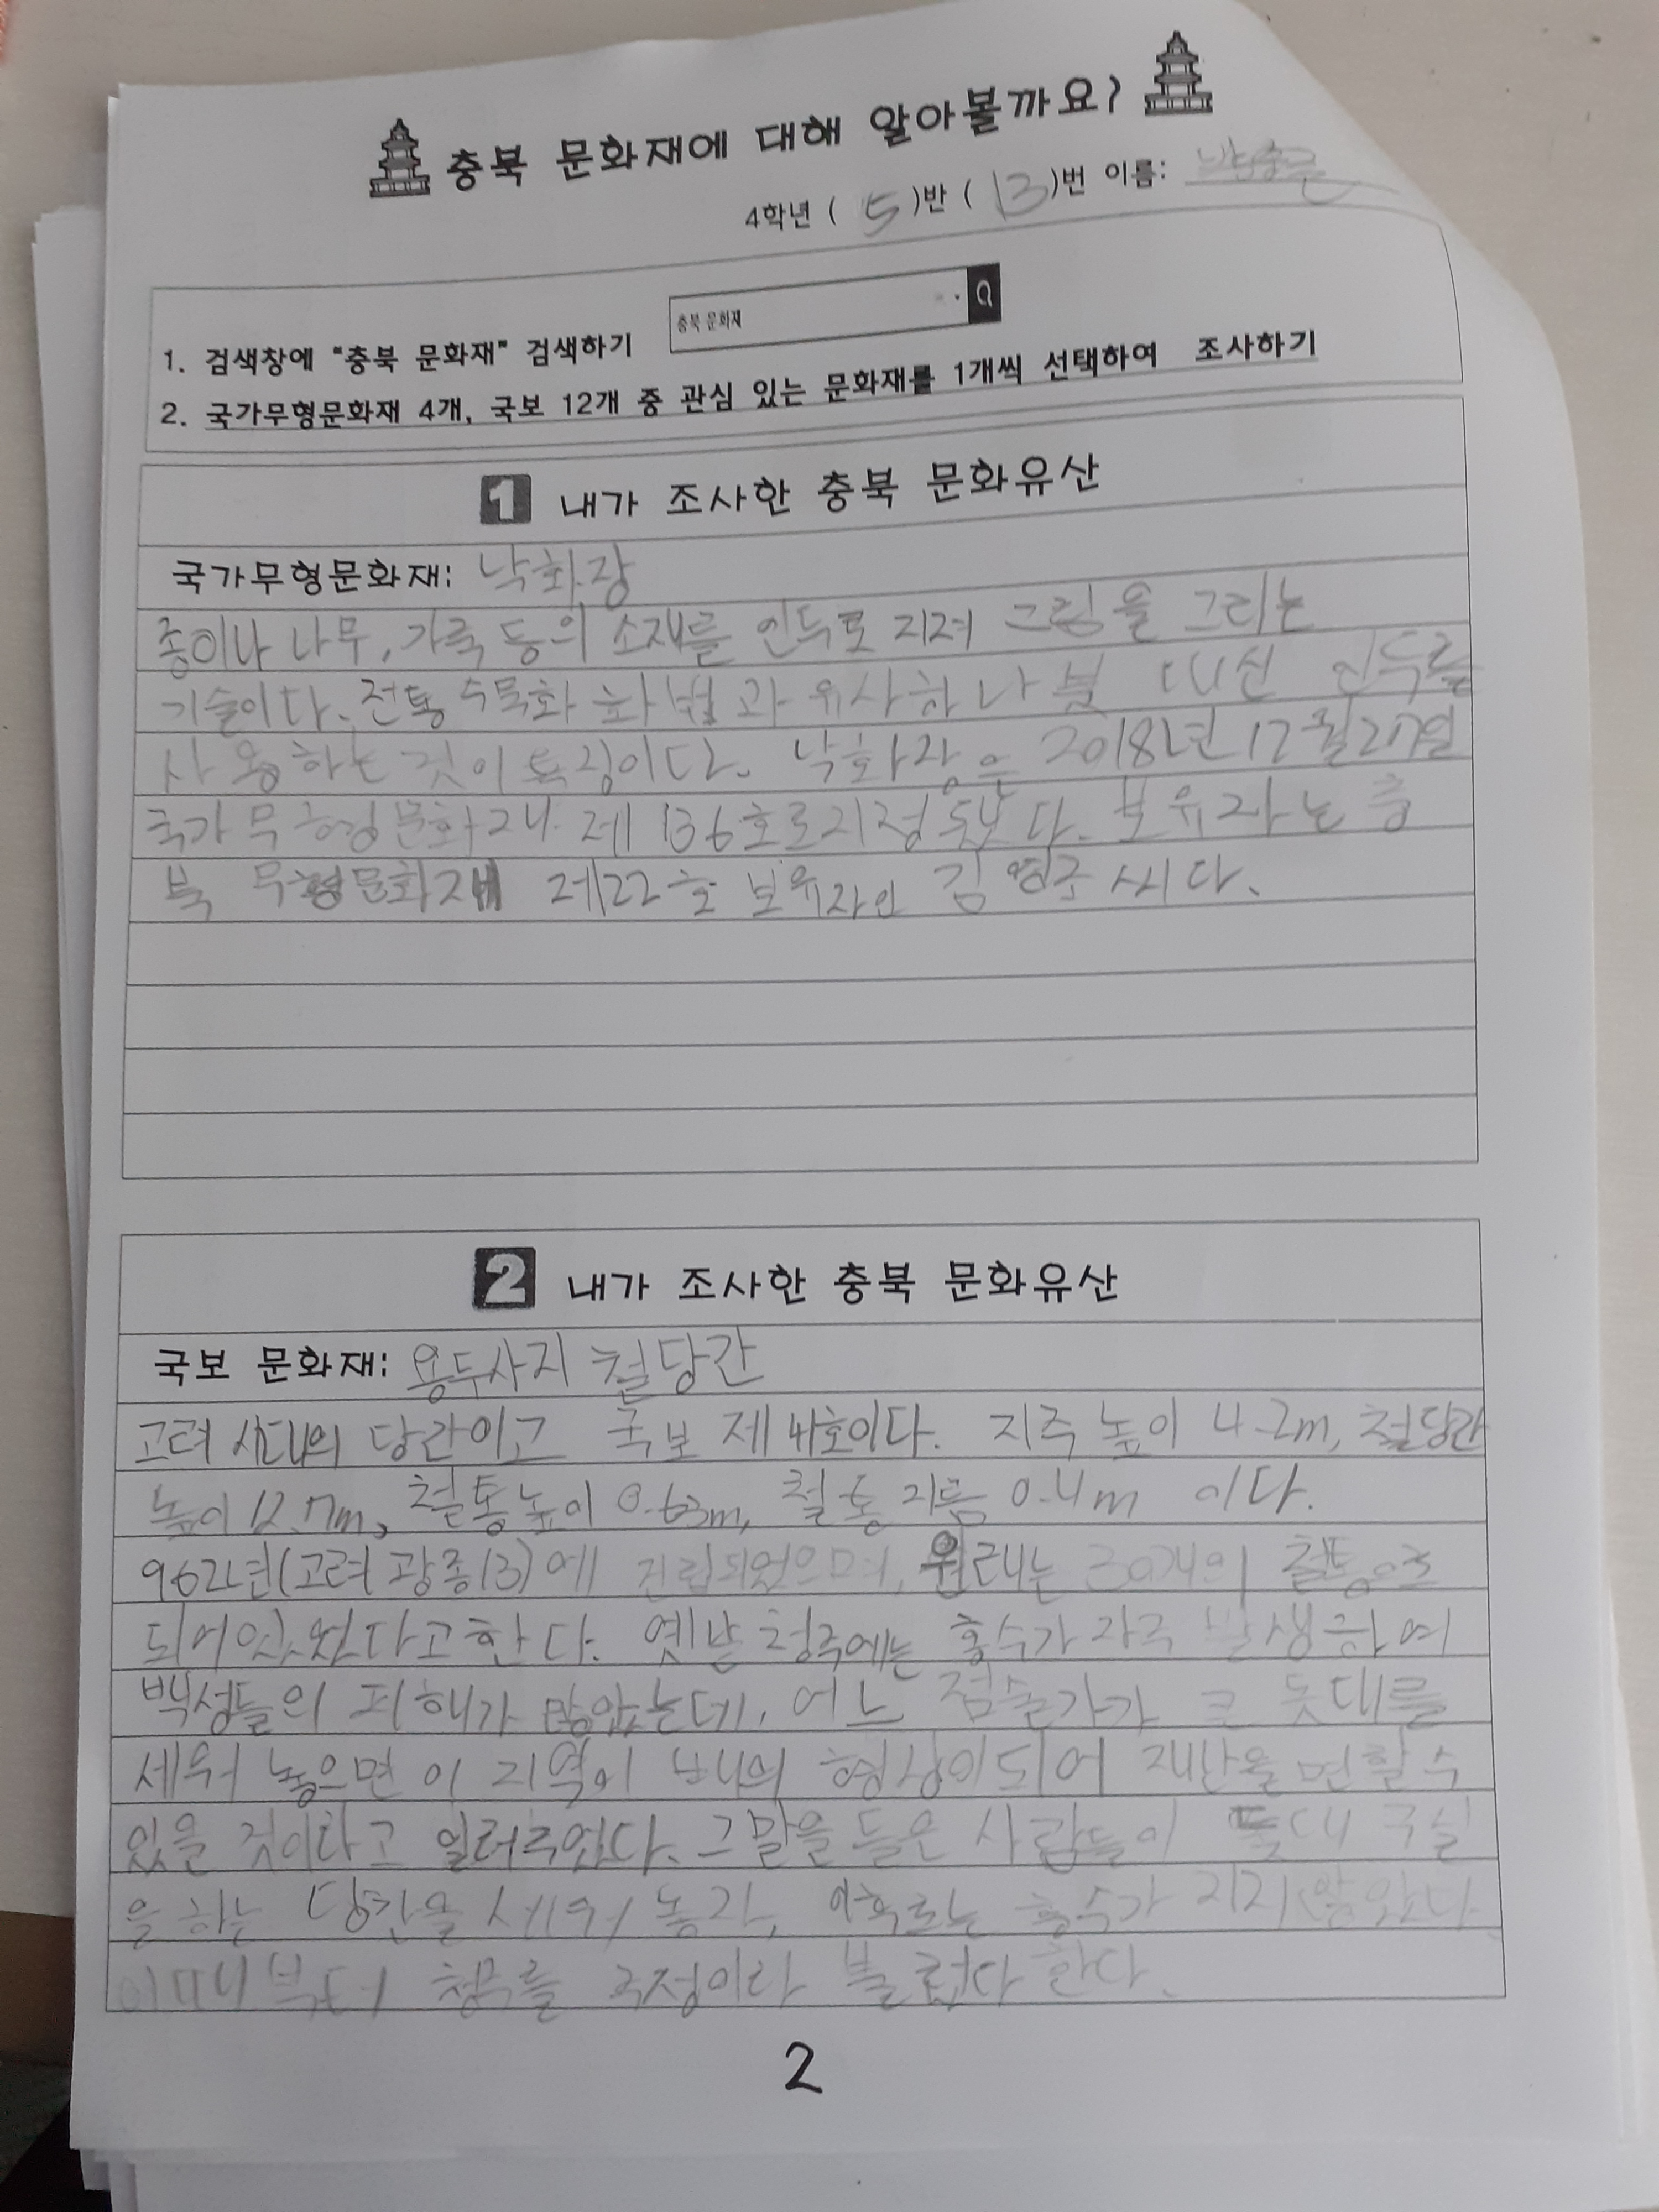 충북 문화재에 대해 알아볼까요?
4학년 ( 5 )반 ( 13 )번 이름:
충북 문화재
1. 검색창에 "충북 문화재" 검색하기
2. 국가무형문화재 4개, 국보 12개 중 관심 있는 문화재를 1개씩 선택하여 조사하기
1 내가 조사한 충북 문화유산
국가무형문화재: 낙화장
종이나 나무, 가죽 등의 소재를 인두로 지져 그림을 그리는
기술이다. 전통 수묵화 화법과 유사하나 붓 대신 인두를
사용하는 것이 특징이다. 낙화장은 2018년 12월 27일
국가무형문화재 제 136호로 지정됐다. 보유자는 충
북 무형문화재 제22호 보유자인 김영조 씨다.
2 내가 조사한 충북 문화유산
국보 문화재: 용두사지 철당간
고려 시대의 당간이고 국보 제 41호이다. 지주 높이 4.2m, 철당간
높이 12.7m, 철통높이 0.63m, 철통 지름 0.4m 이다.
962년(고려 광종13)에 건립되었으며, 원래는 30개의 철통으로
되어있었다고한다. 옛날 청주에는 홍수가 자주 발생하여
백성들의 피해가 많았는데, 어느 점술가가 큰 돛대를
세워 놓으면 이 지역이 배의 형상이되어 재난을 면할 수
있을 것이라고 일러주었다. 그말을 들은 사람들이 돛대 구실
을 하는 당간을 세워 놓자, 이후로는 홍수가 지지 않았다
이때부터 청주를 주성이라 불렀다 한다.
2